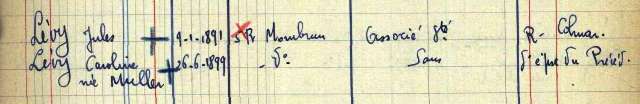 Lévy Jules 9-1-1891 5 R. Mombrun Associé gté R- Colmar.
Lévy Caroline 26-6-1899 - do - Sans d'épse du Précéd.
née Muller